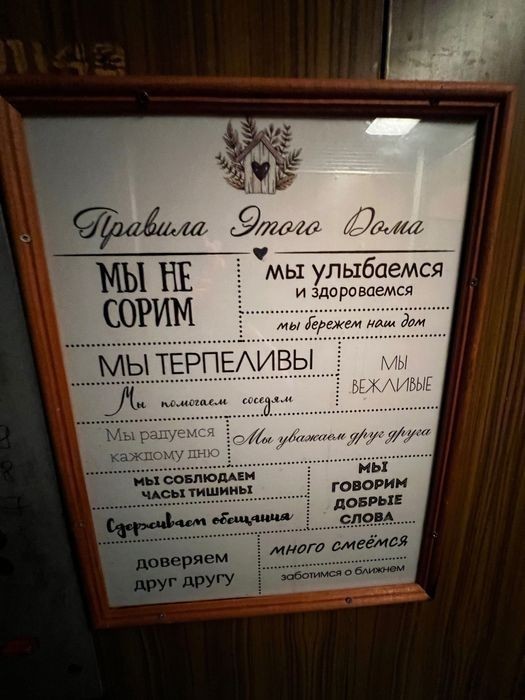 Правила Этого Дома
МЫ НЕ
СОРИМ
мы улыбаемся
и здороваемся
мы бережем наш дом
МЫ ТЕРПЕЛИВЫ
Мы помогаем соседям
МЫ
ВЕЖЛИВЫЕ
Мы радуемся
каждому дню
Мы уважаем друг друга
МЫ СОБЛЮДАЕМ
ЧАСЫ ТИШИНЫ
Сдерживаем обещания
МЫ
ГОВОРИМ
ДОБРЫЕ
СЛОВА
доверяем
друг другу
много смеёмся
заботимся о ближнем